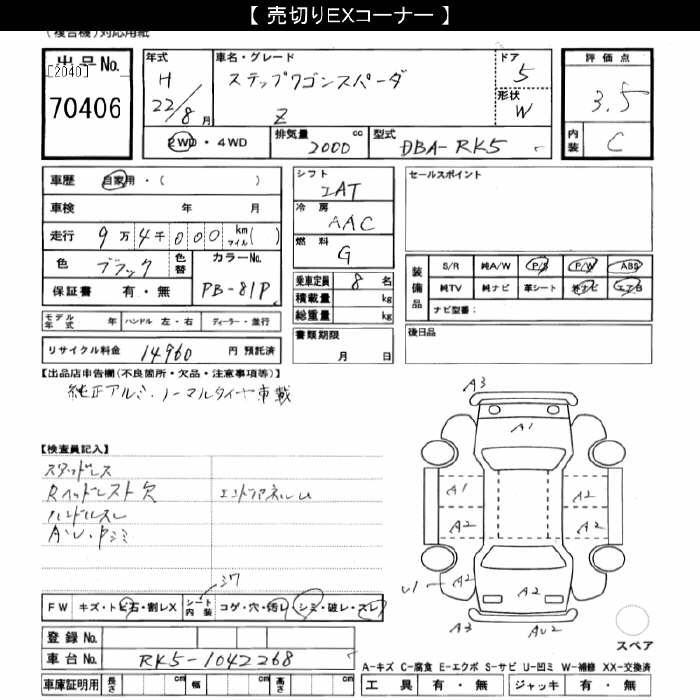 【 売切りEXコーナー 】
(複合機)対応用紙
出品No.
[2040]
70406
年式
H
22/8月
車名・グレード
ステップワゴンスパーダ
Z
ドア
5
形状
W
2WD・4WD
排気量 cc
2000
型式
DBA-RK5
評価点
3.5
内装
C
車歴 自家用・( )
車検 年 月
走行 9万4千000 km マイル( )
色 ブラック 色替
カラーNo.
PB-81P
保証書 有・無
シフト
IAT
冷房
AAC
燃料
G
乗車定員 8 名
積載量 kg
総重量 kg
セールスポイント
装備品
S/R 純A/W P/S P/W ABS
純TV 純ナビ 革シート 社ナビ エアB
ナビ型番:
モデル年式 年 ハンドル 左・右 ディーラー・並行
リサイクル料金 14960 円 預託済
書類期限
月 日
後日品
【出品店申告欄(不良箇所・欠品・注意事項等)】
純正アルミ・ノーマルタイヤ車載
【検査員記入】
スタッドレス
Rヘッドレスト欠
ハンドルスレ
A・U・Pシミ
シワ
FW キズ・トビ石・割レX シート内装 コゲ・穴・汚レ シミ・破レ・スレ
登録No.
車台No. RK5-1042268
車庫証明用 長さ cm 幅 cm 高さ cm
A3
A1
A1
A2
A2
A2
U1
A2
A2
A3
AU2
スペア
A-キズ C-腐食 E-エクボ S-サビ U-凹ミ W-補修 XX-交換済
工具 有・無 ジャッキ 有・無